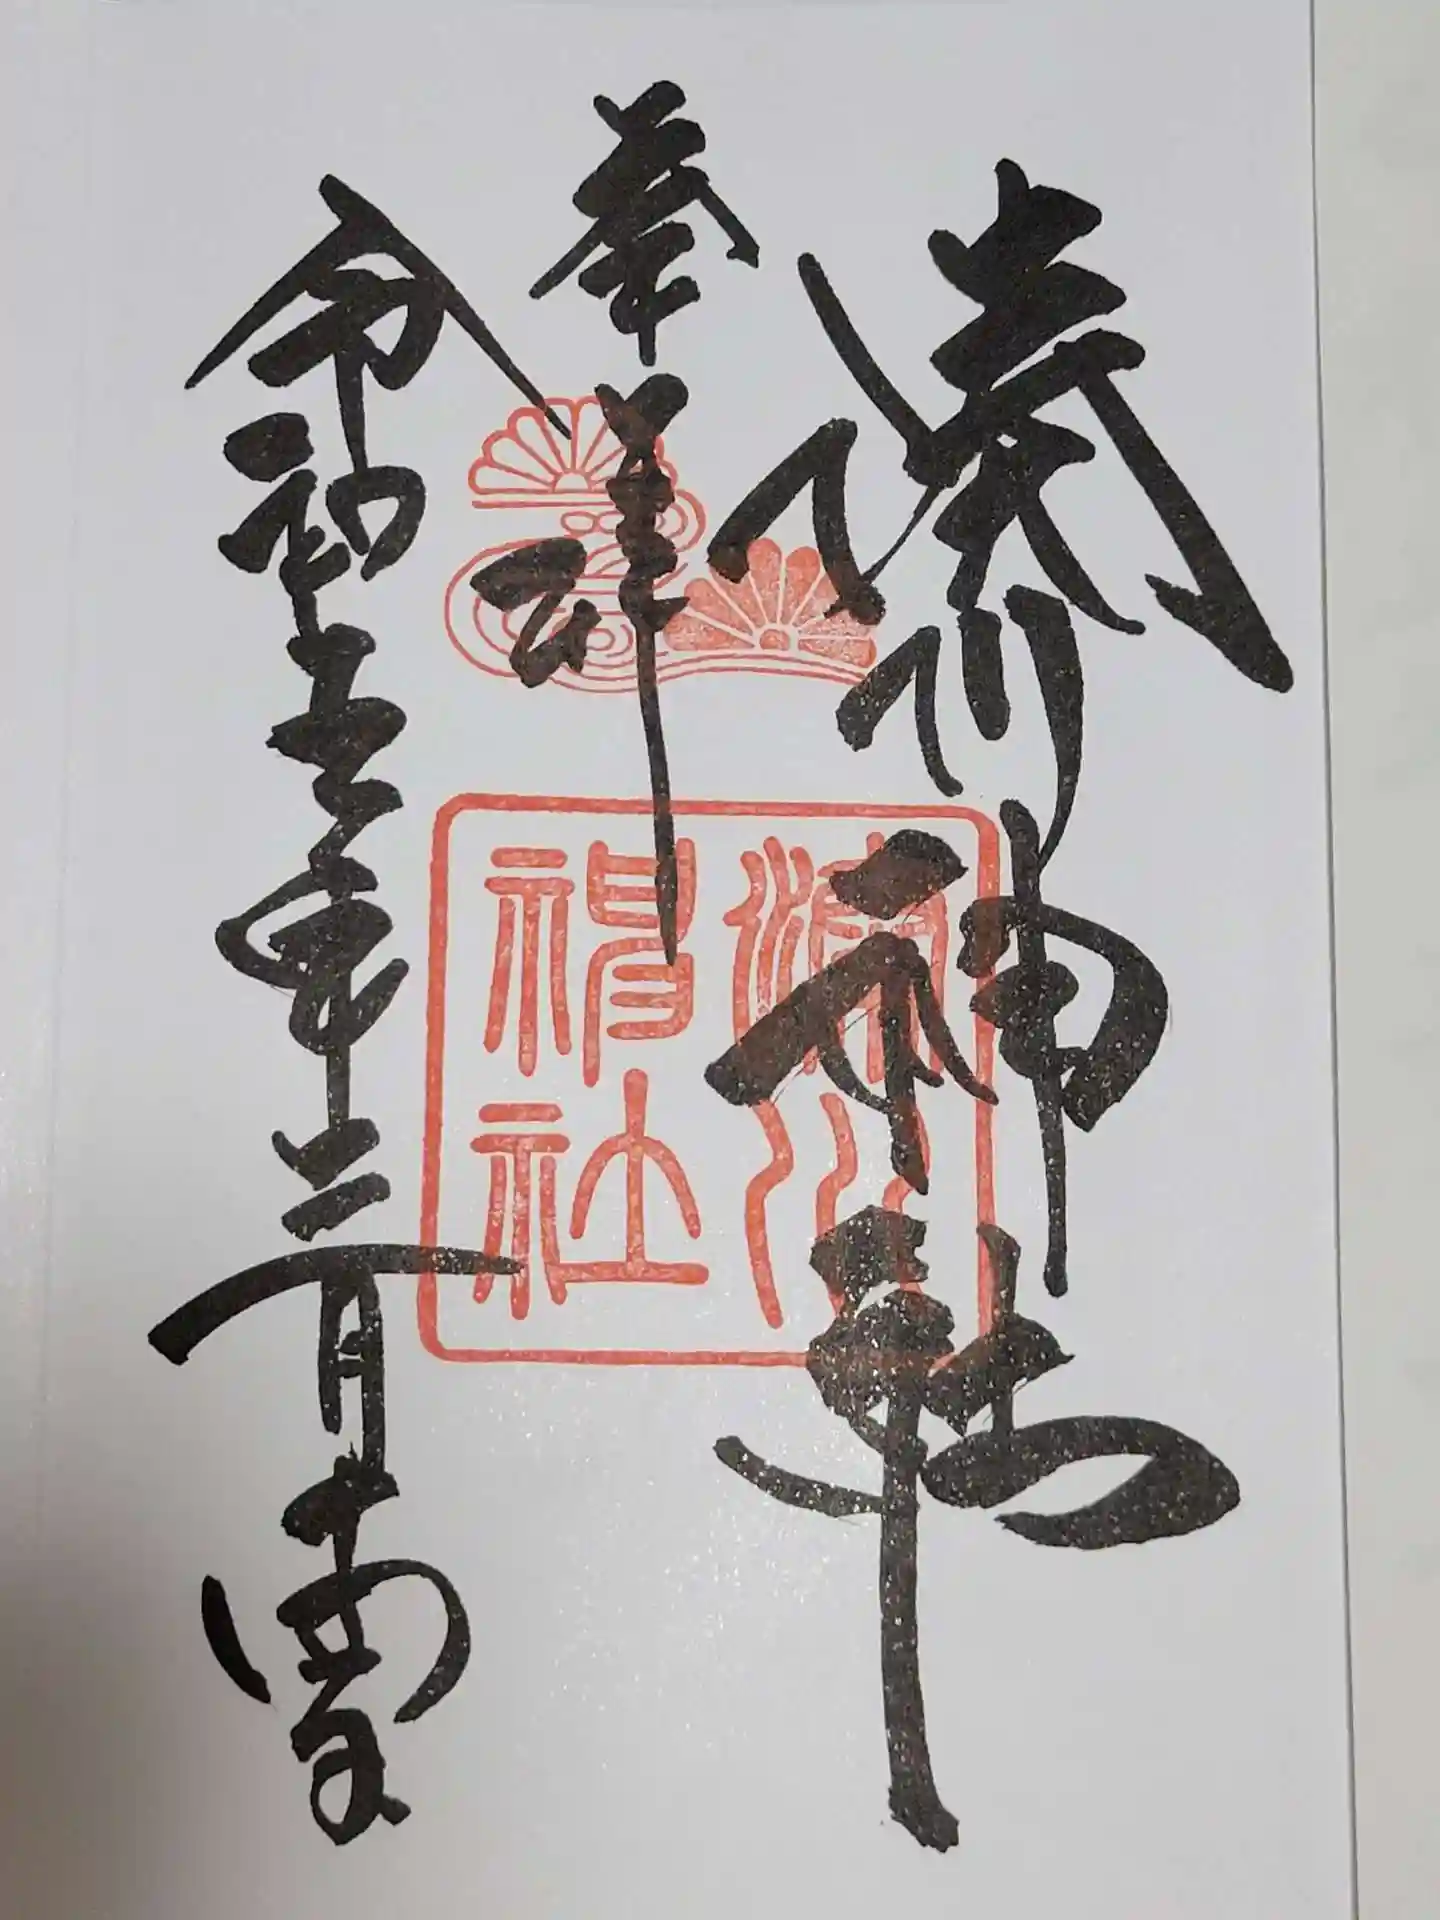 湊川神社
奉拝
令和五年二月十
湊川
神社